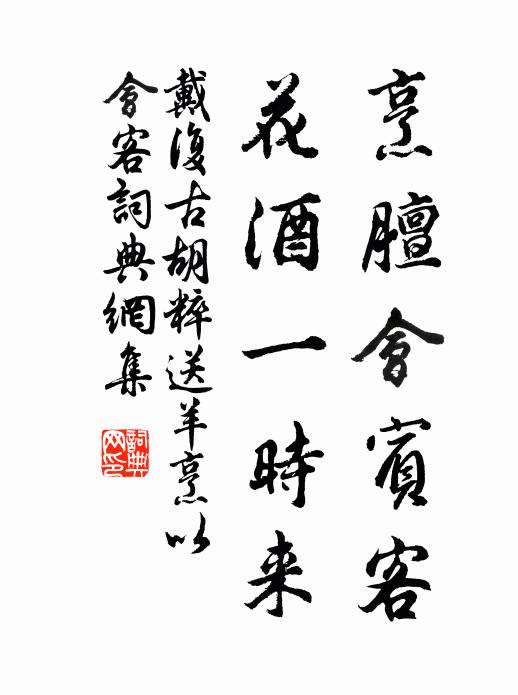 烹膻會賓客
花酒一時来
戴復古胡粹送羊烹以
會客詞典網集
詞典
网印